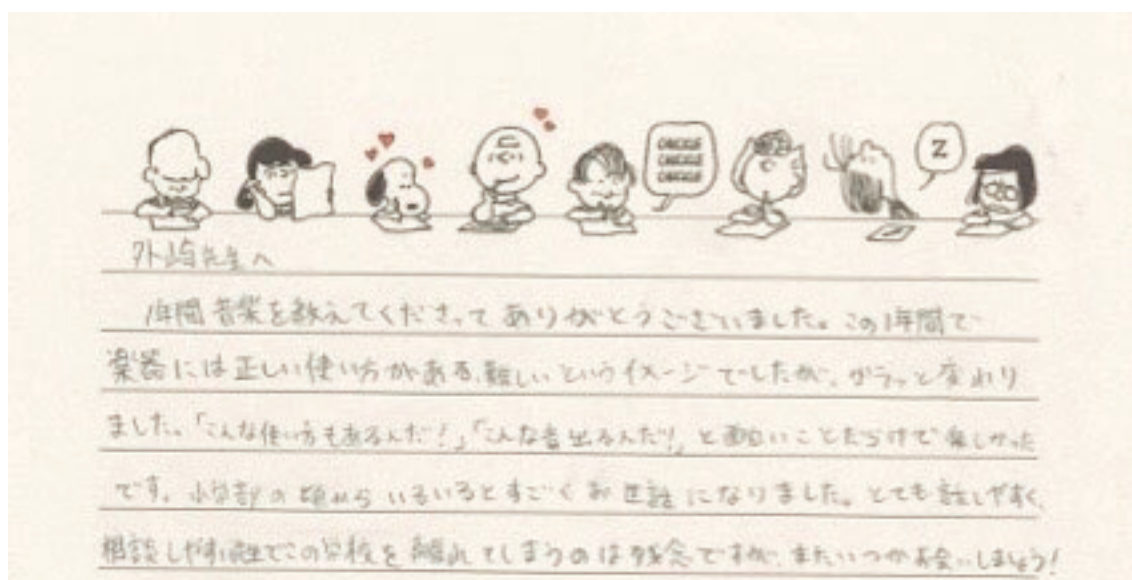 GIGGLE
GIGGLE
GIGGLE
Z
外崎先生へ
1年間音楽を教えてくださってありがとうございました。この1年間で
楽器には正しい使い方がある、難しいというイメージでしたが、ガラッと変わり
ました。「こんな使い方もあるんだ!」「こんな音出るんだ!」と面白いことだらけで楽しかった
です。小学部の頃からいろいろとすごくお世話になりました。とても話しやすく、
相談しやすい先生でこの学校を離れてしまうのは残念ですが、またいつかお会いしましょう!